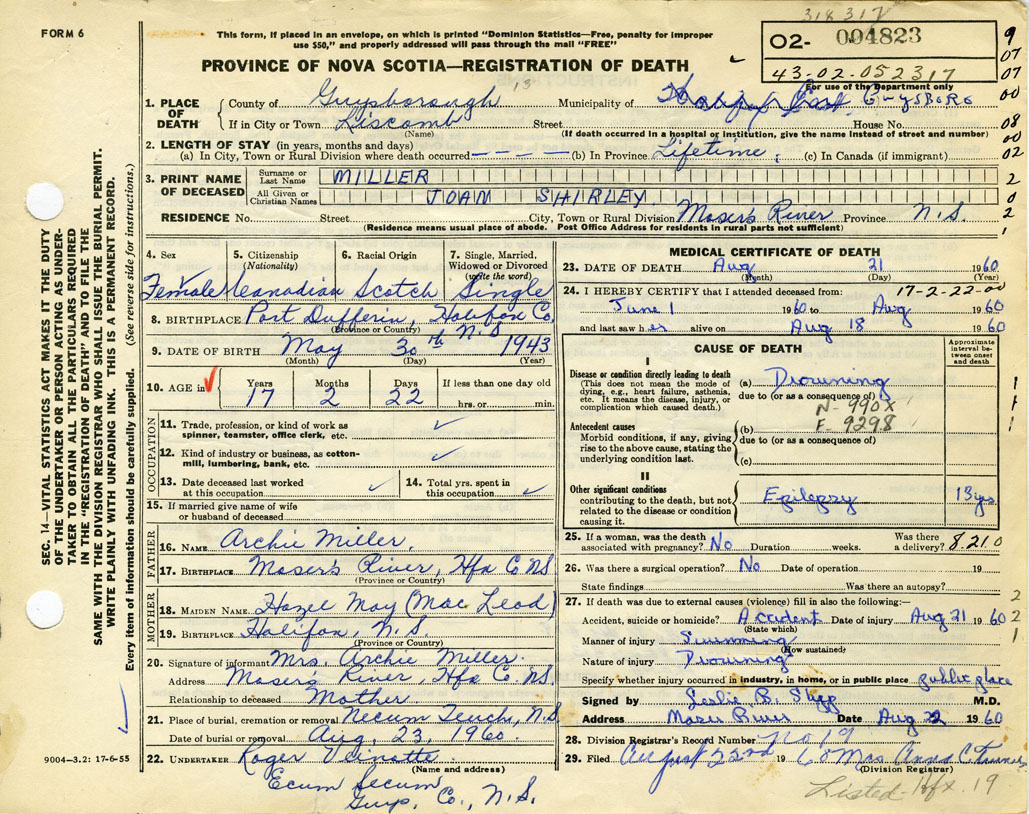 318 317
FORM 6
This form, if placed in an envelope, on which is printed "Dominion Statistics—Free, penalty for improper
use $50," and properly addressed will pass through the mail "FREE"
02- 004823
43-02-052317
For use of Department only
PROVINCE OF NOVA SCOTIA—REGISTRATION OF DEATH
9
07
07
00
08
00
02
2
0
2
1
1. PLACE OF DEATH
County of Guysborough 13 Municipality of Guysboro
If in City or Town Liscomb Street House No.
(Name) (If death occurred in a hospital or institution, give the name instead of street and number)
2. LENGTH OF STAY (in years, months and days)
(a) In City, Town or Rural Division where death occurred – – – – (b) In Province Lifetime; (c) In Canada (if immigrant)
3. PRINT NAME OF DECEASED
Surname or Last Name MILLER
All Given or Christian Names JOAN SHIRLEY
RESIDENCE No. Street City, Town or Rural Division Moser's River Province N.S.
(Residence means usual place of abode. Post Office Address for residents in rural parts not sufficient)
4. Sex 5. Citizenship (Nationality) 6. Racial Origin 7. Single, Married, Widowed or Divorced (write the word)
Female Canadian Scotch Single
8. BIRTHPLACE Port Dufferin, Halifax Co. N.S
(Province or Country)
9. DATE OF BIRTH May 30th 1943
(Month) (Day) (Year)
10. AGE in Years Months Days If less than one day old
17 2 22 hrs. or min.
OCCUPATION
11. Trade, profession, or kind of work as
spinner, teamster, office clerk, etc.
12. Kind of industry or business, as cotton-
mill, lumbering, bank, etc.
13. Date deceased last worked
at this occupation
14. Total yrs. spent in
this occupation
15. If married give name of wife
or husband of deceased
FATHER
16. NAME Archie Miller.
17. BIRTHPLACE Moser's River, Hfx Co NS
(Province or Country)
MOTHER
18. MAIDEN NAME Hazel May (Mac Leod)
19. BIRTHPLACE Halifax, N.S.
(Province or Country)
20. Signature of informant Mrs. Archie Miller.
Address Moser's River, Hfx Co NS.
Relationship to deceased Mother.
21. Place of burial, cremation or removal Necum Teuch, N.S.
Date of burial or removal Aug, 23, 1960.
22. UNDERTAKER Roger Veinotte.
(Name and address)
Ecum Secum
Guys. Co., N.S.
MEDICAL CERTIFICATE OF DEATH
23. DATE OF DEATH Aug 21 1960
(Month) (Day) (Year)
17-2-22-00
24. I HEREBY CERTIFY that I attended deceased from:
June 1 1960 to Aug 1960
and last saw her alive on Aug 18 1960
CAUSE OF DEATH
Approximate interval between onset and death
I
Disease or condition directly leading to death
(This does not mean the mode of
dying, e.g., heart failure, asthenia,
etc. It means the disease, injury, or
complication which caused death.)
(a) Drowning
due to (or as a consequence of)
N-990X
F-9298
Antecedent causes
Morbid conditions, if any, giving
rise to the above cause, stating the
underlying condition last.
(b)
due to (or as a consequence of)
(c)
II
Other significant conditions
contributing to the death, but not
related to the disease or condition
causing it.
Epilepsy 13 yrs
1
1
1
25. If a woman, was the death
associated with pregnancy? No Duration weeks. Was there
a delivery? 8.210
26. Was there a surgical operation? No Date of operation 19
State findings Was there an autopsy?
27. If death was due to external causes (violence) fill in also the following:—
Accident, suicide or homicide? Accident Date of injury Aug 21 1960
(State which)
Manner of injury Swimming
(How sustained)
Nature of injury Drowning
Specify whether injury occurred in industry, in home, or in public place public place
2
2
1
Signed by Leslie B. M.D.
Address Moser River Date Aug 22 1960
28. Division Registrar's Record Number No 19
29. Filed August 22nd 1960 Mrs Anna C.
(Division Registrar)
Listed-Hfx.19
SEC. 14—VITAL STATISTICS ACT MAKES IT THE DUTY
OF THE UNDERTAKER OR PERSON ACTING AS UNDER-
TAKER TO OBTAIN ALL THE PARTICULARS REQUIRED
IN THE "REGISTRATION OF DEATH" AND TO FILE THE
SAME WITH THE DIVISION REGISTRAR WHO SHALL ISSUE THE BURIAL PERMIT.
WRITE PLAINLY WITH UNFADING INK. THIS IS A PERMANENT RECORD.
Every item of information should be carefully supplied. (See reverse side for instructions.)
9004-3.2: 17-6-55